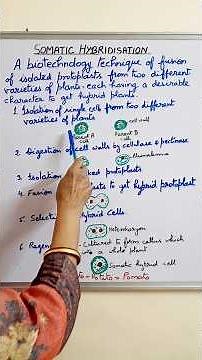 SOMATIC HYBRIDISATION
A biotechnology technique of fusion
of isolated protoplasts from two different
varieties of plants - each having a desirable
character to get hybrid plants.
1. Isolation of single cells from two different
varieties of plants
cell wall
Parent A
cell
Parent B
cell
2. Digestion of cell walls by cellulase & pectinase
3. Isolation protoplasts
4. Fusion to get hybrid protoplast
Heterokaryon
5. Selection hybrid cells
6. Cultured to form callus which
a whole plant
Somatic hybrid cell
Potato = Pomato